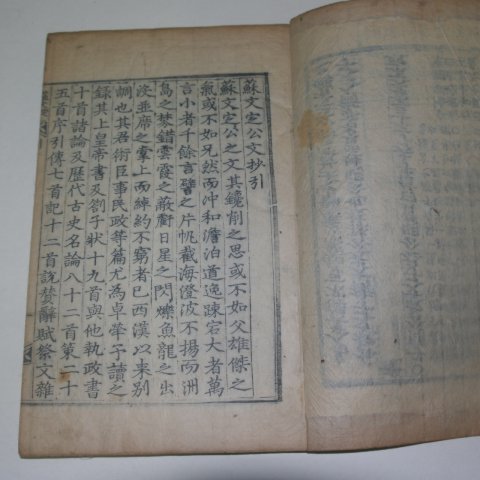 蘇文定公文抄引
蘇文定公之文其鑱削之思或不如父雄傑之
氣或不如兄然而冲和澹泊遒逸踈宕大者萬
言小者千餘言譬之片帆截海澄波不揚而洲
島之棼錯雲霞之蔽虧日星之閃爍魚龍之出
沒並席之掌上而綽約不窮者已西漢以来別
調也其君術臣事民政等篇尤為卓犖予讀之
錄其上皇帝書及劄子狀十九首與他執政書
十首諸論及歷代古史名論八十二首策二十
五首序引傳七首記十二首說贊辭賦祭文雜